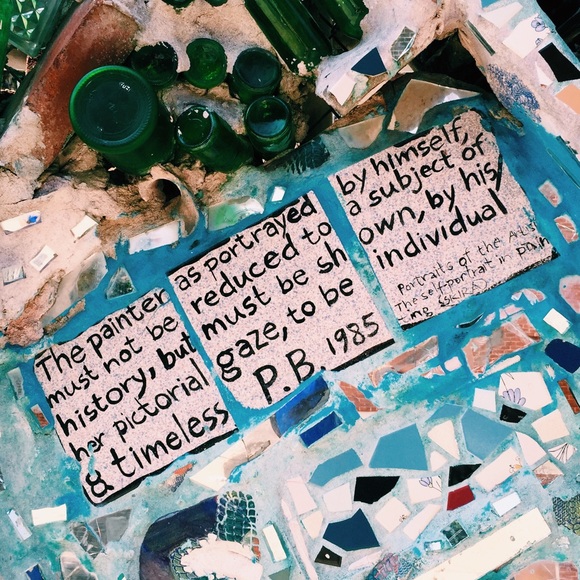 The painter as portrayed by himself,
must not be reduced to a subject of
history, but must be sh own, by his/
her pictorial gaze, to be individual
& timeless P.B. 1985
Portraits of the Artist
The self portrait in pain
ing